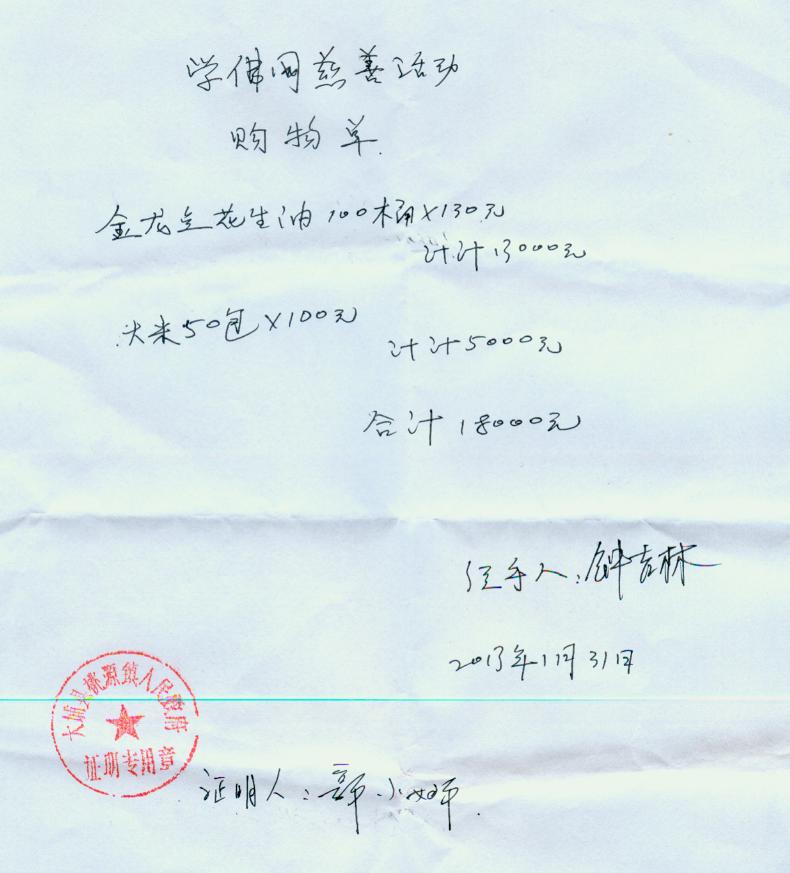 学佛网慈善活动
购物单
金龙鱼花生油100桶×130元
计计13000元
大米50包×100元
计计5000元
合计18000元
经手人:钟吉林
2013年1月31日
大埔县桃源镇人民政府
证明专用章
证明人: